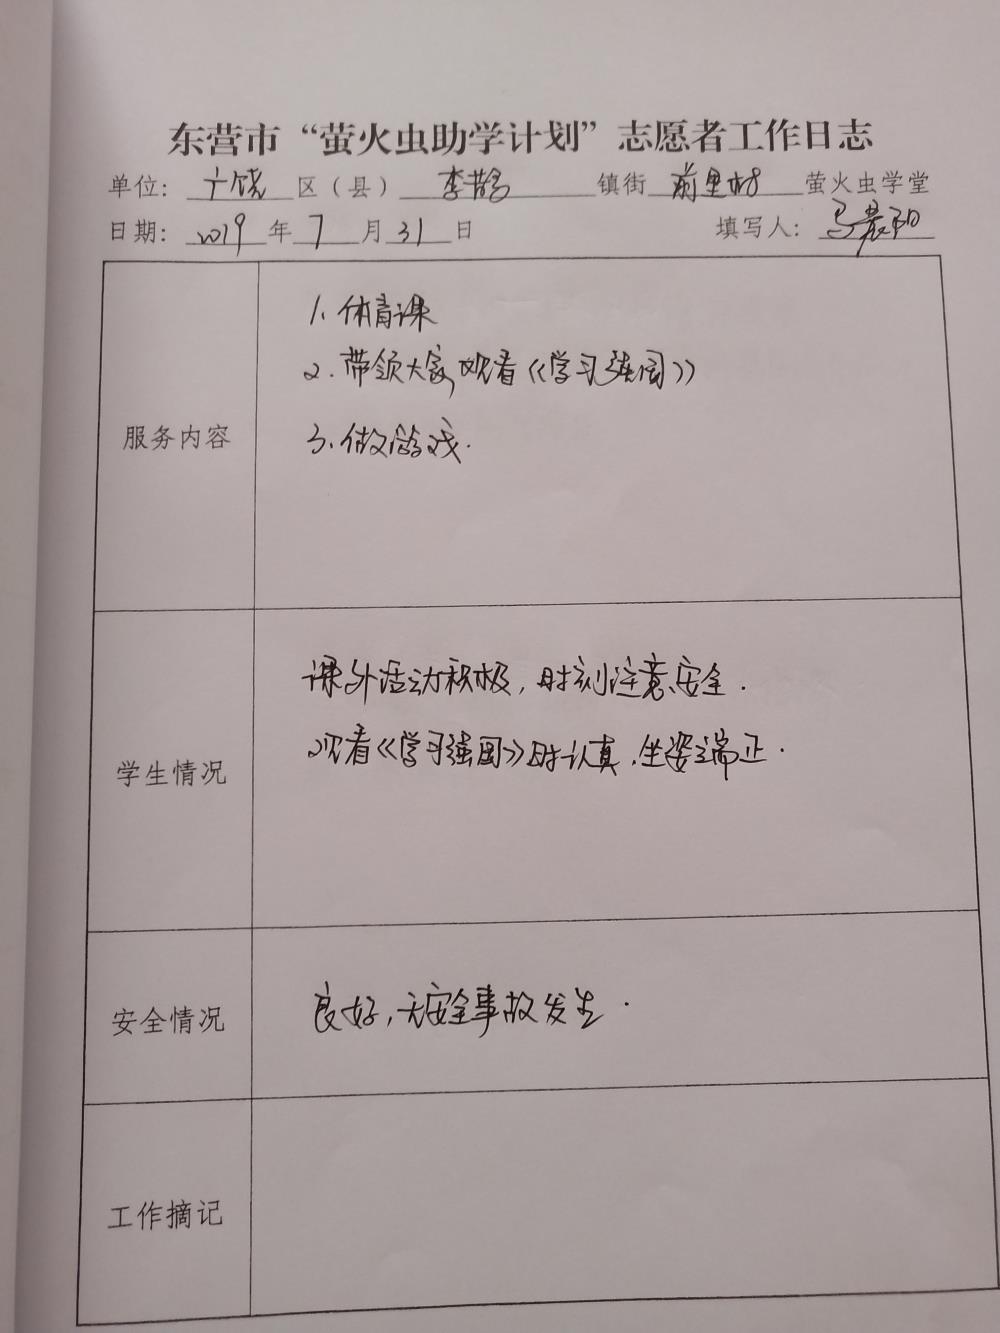 东营市“萤火虫助学计划”志愿者工作日志
单位：广饶区（县）李鹊镇街前里村萤火虫学堂
日期：2019年7月31日 填写人：马晨阳
服务内容
1、体育课
2.带领大家观看《学习强国》
3、做游戏.
学生情况
课外活动积极，时刻注意安全.
观看《学习强国》时认真，坐姿端正.
安全情况
良好，无安全事故发生.
工作摘记